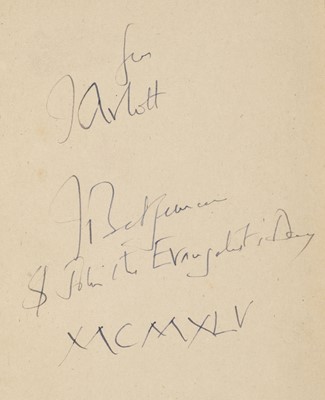 for
J Arlott
J Betjeman
S John the Evangelist's Day
MCMXLV